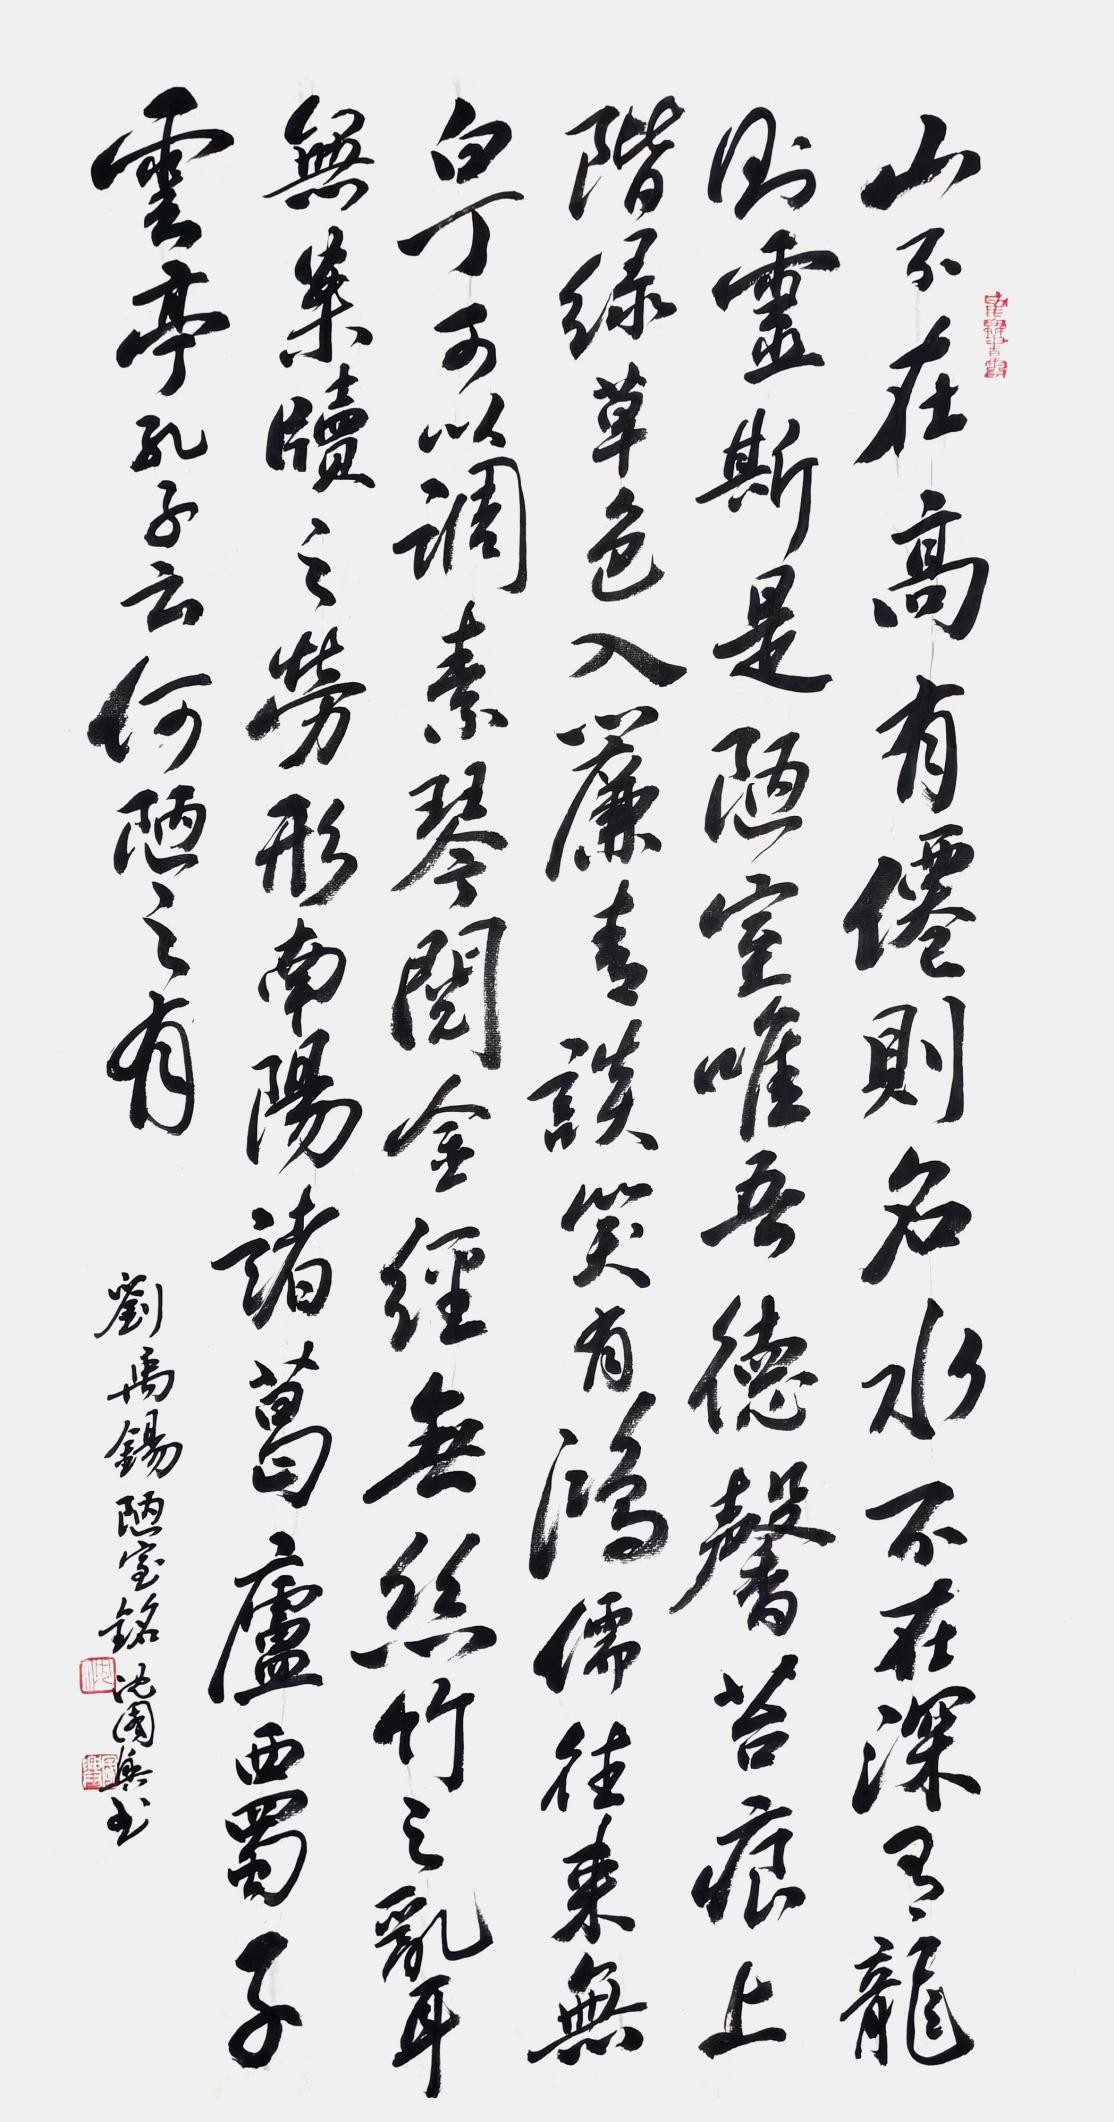 山不在高有僊則名水不在深有龍
則靈斯是陋室唯吾德馨苔痕上
階緑草色入簾青談笑有鴻儒往來無
白丁可以調素琴閱金經無絲竹之亂耳
無案牘之勞形南陽諸葛廬西蜀子
雲亭孔子云何陋之有
劉禹錫陋室銘沈國興书